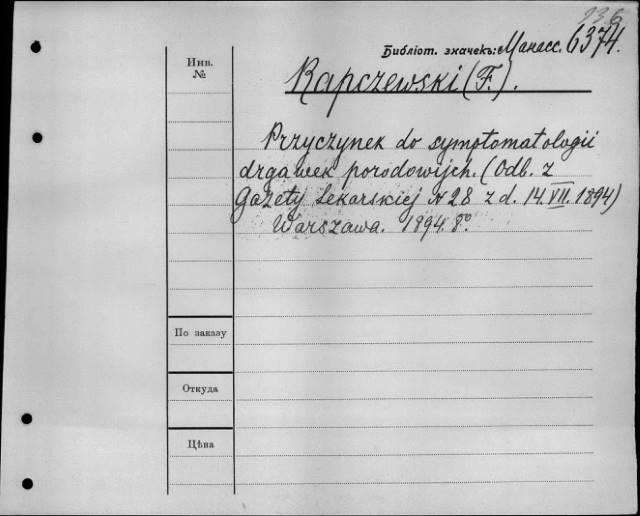 936
Библіот. значекъ: Манасс. 6374.
Инв.
№
Kapczewski (F.).
Przyczynek do symptomatologii
drgawek porodowijch. (Odb. z
Gazety Lekarskiej № 28 z d. 14.VII.1894)
Warszawa. 1894. 8º.
По заказу
Откуда
Цѣна